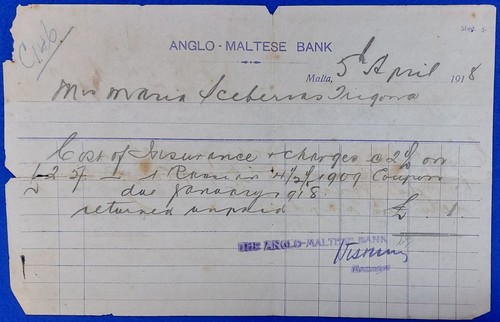 C/46
ANGLO-MALTESE BANK
Malta, 5th April 1918
Mrs Maria Trigona
Cost of Insurance & charges @ 2% on
1 Russian 4½% 1909 Coupons
due January 1918
returned unpaid £
THE ANGLO-MALTESE BANK
Manager